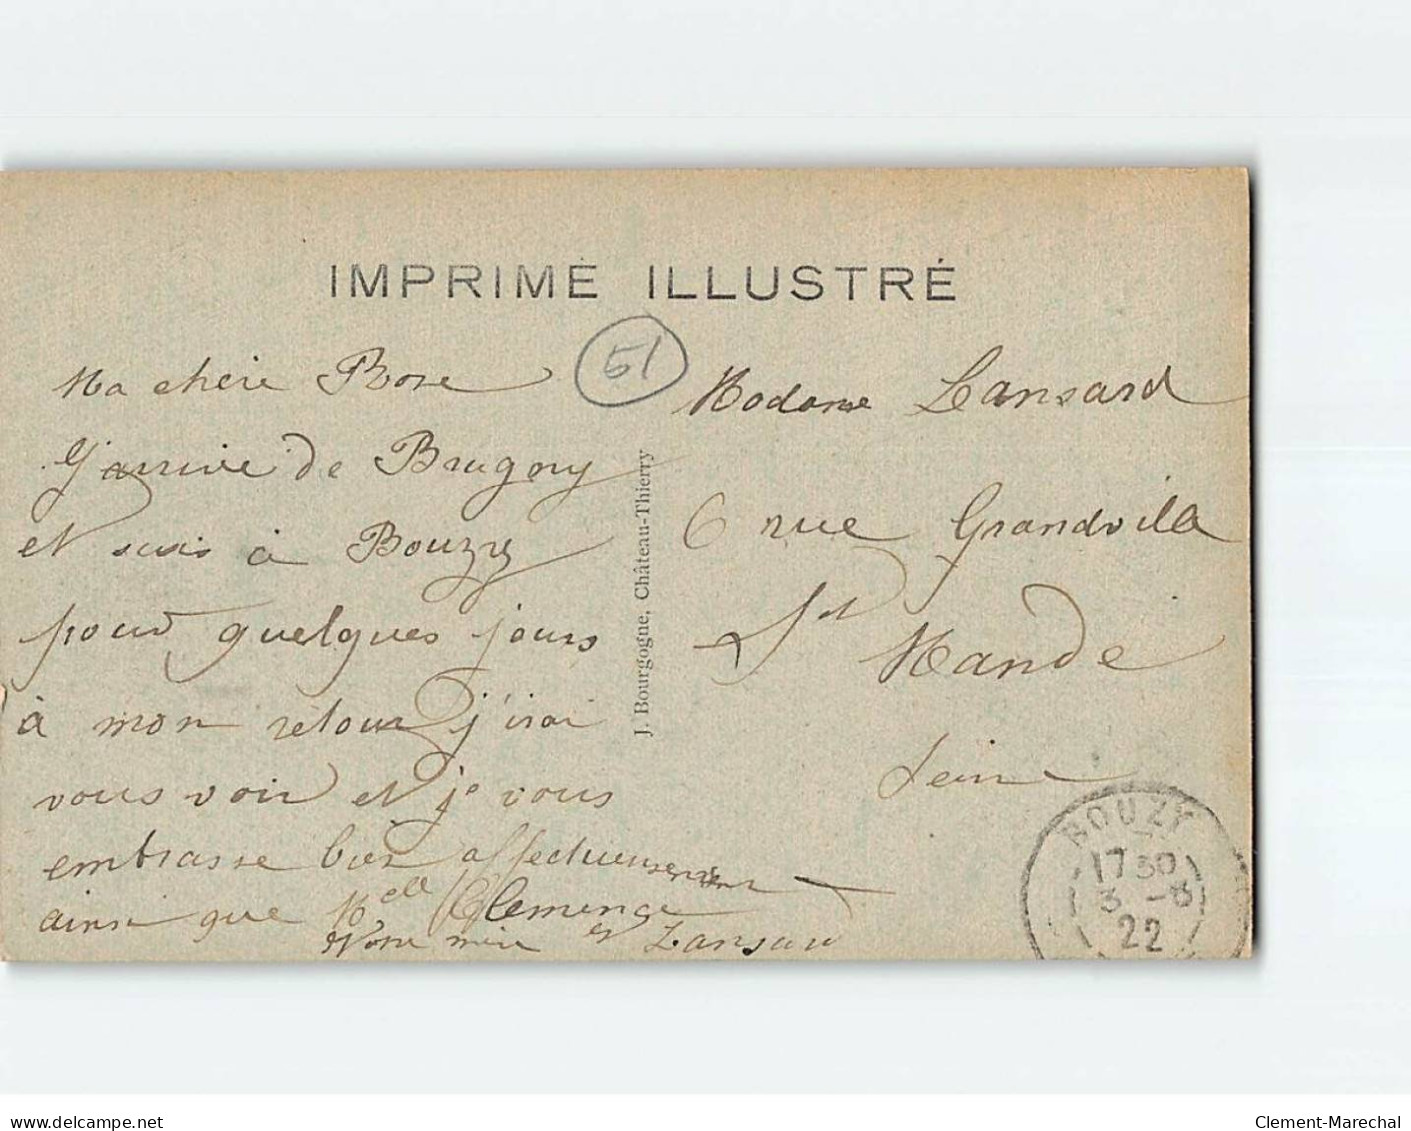 IMPRIMÉ ILLUSTRÉ
51
Ma chère Rose
J'arrive de Brugony
et suis à Bouzy
pour quelques jours
à mon retour j'irai
vous voir et je vous
embrasse bien affectueusement
ainsi que Melle Clemence
Votre mère et Lansard
J. Bourgogne, Château-Thierry
Madame Lansard
6 rue Grandvilla
St Mande
Seine
BOUZY
17 30
3 -8
22
delcampe.net
Clement-Marechal